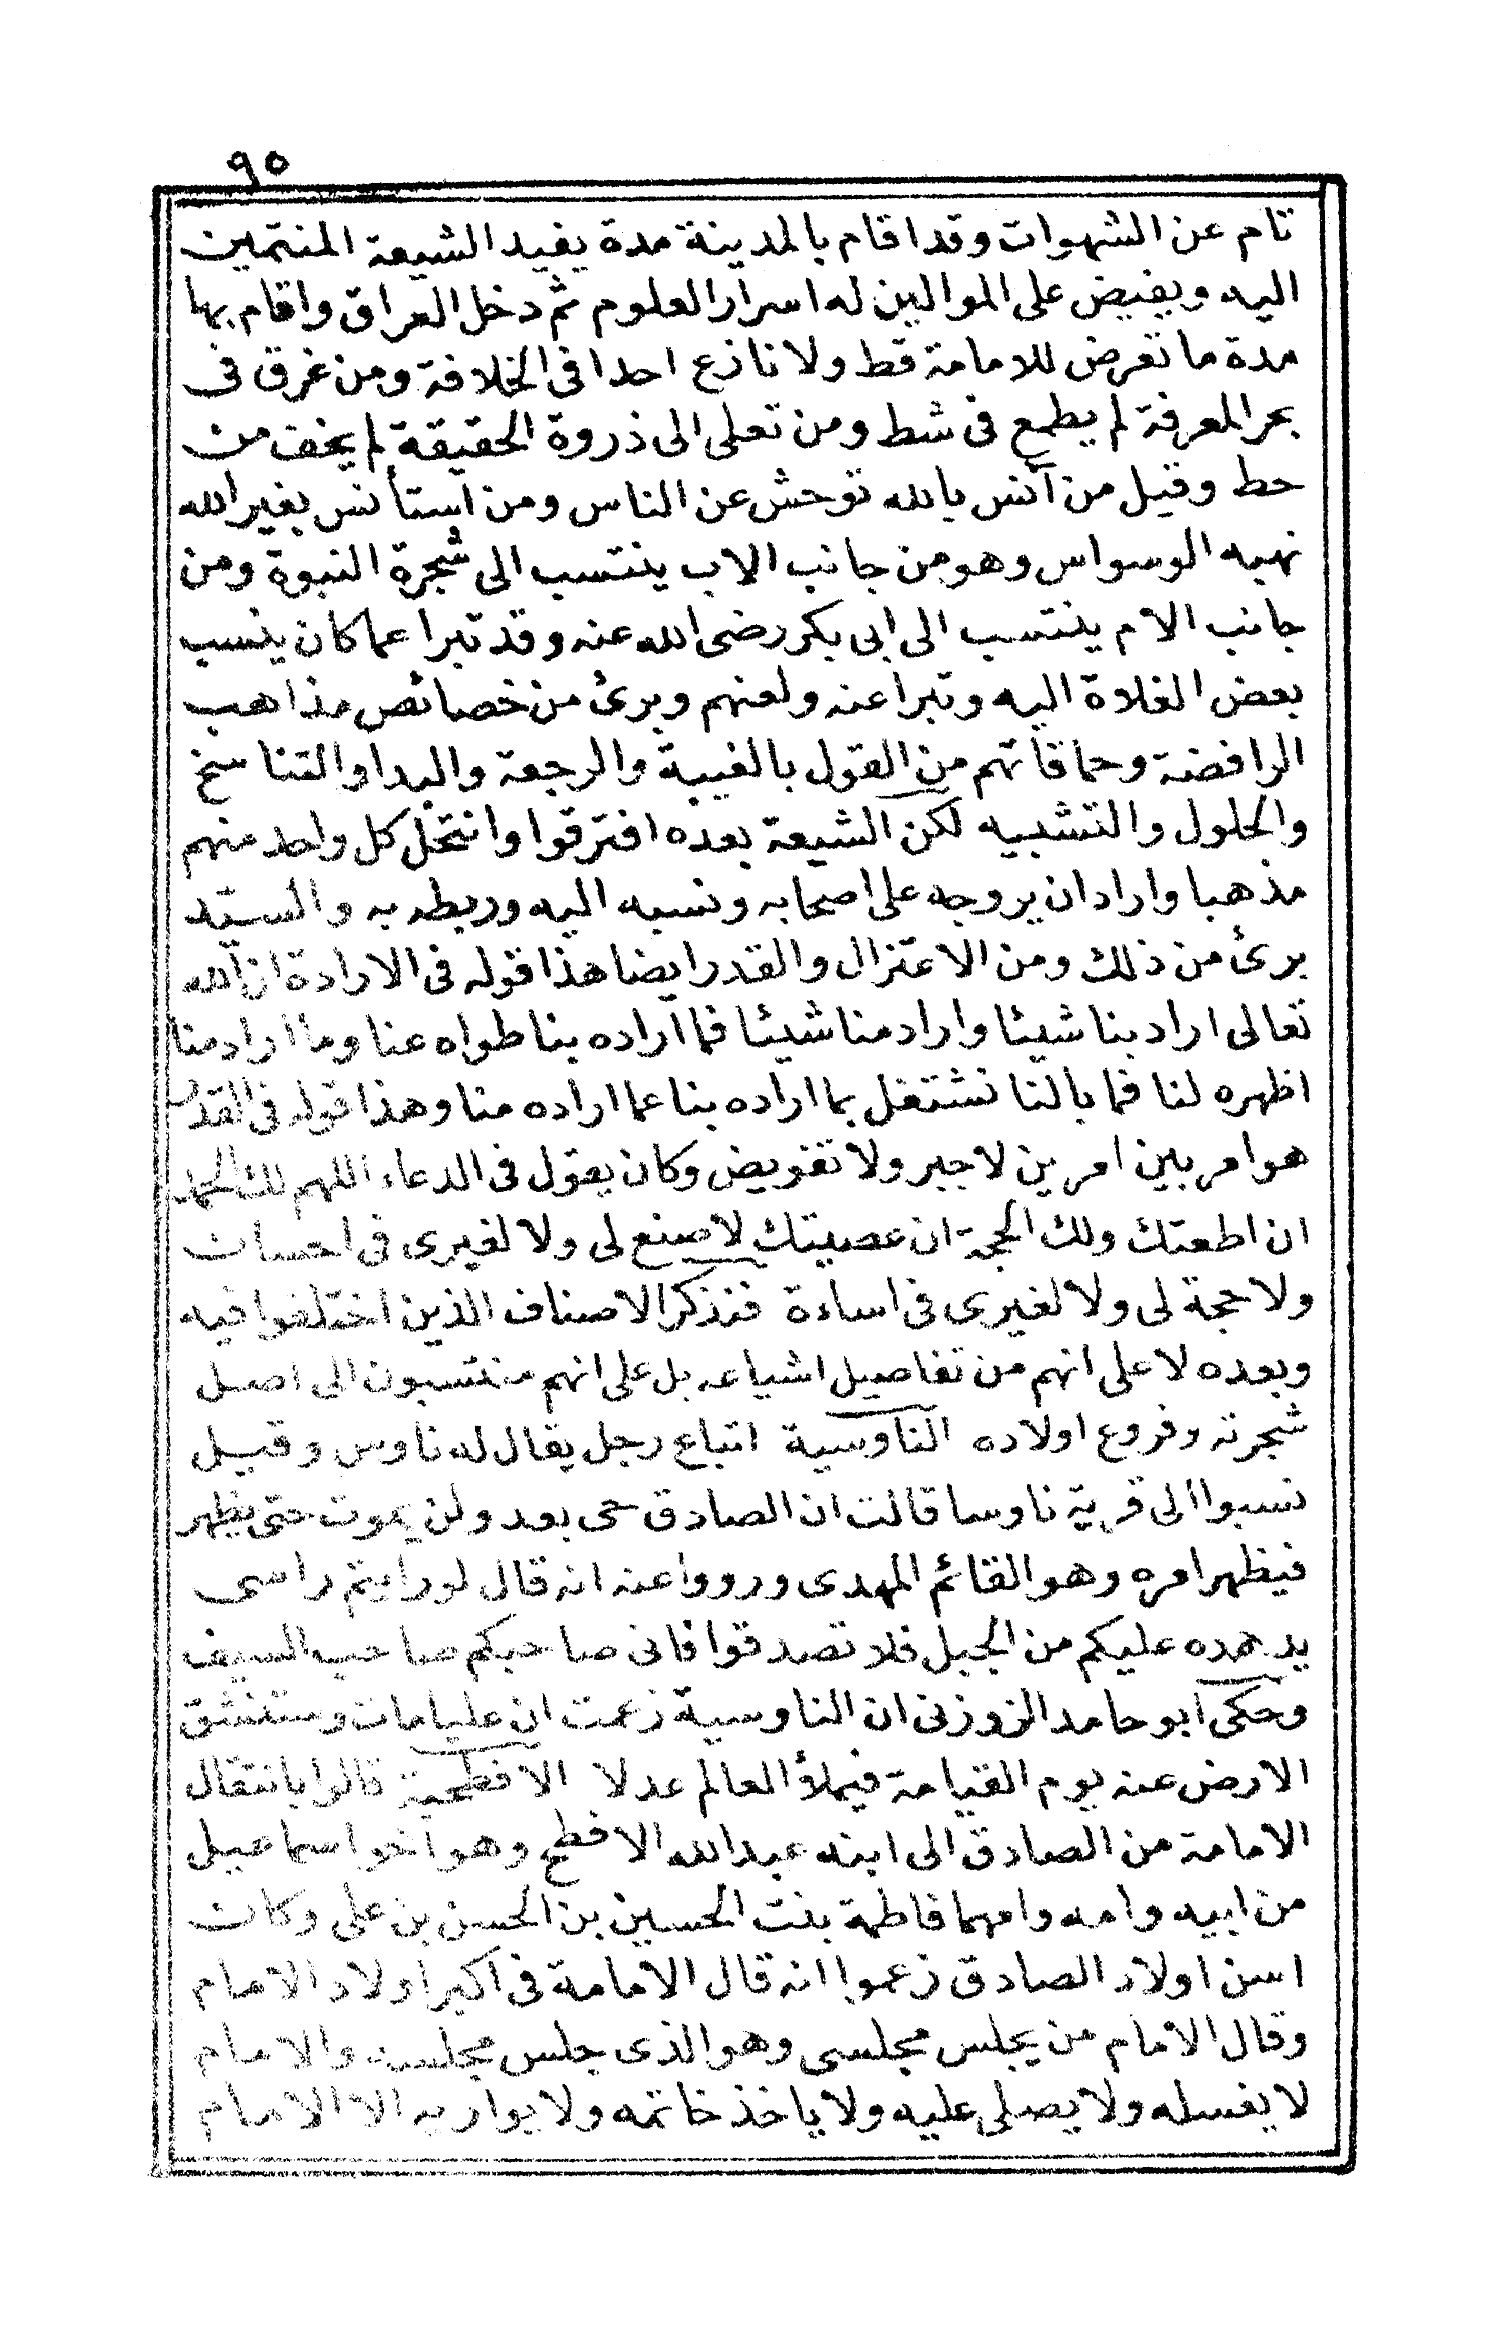 ٩٥
تام عن الشهوات وقد اقام بالمدينة مدة يفيد الشيعة المنتمين
اليه ويفيض على الموالين له اسرار العلوم ثم دخل العراق واقام بها
مدة ما تعرض للامامة قط ولا نازع احدا فى الخلافة ومن غرق فى
بحر المعرفة لم يطمع فى شط ومن تعلى الى ذروة الحقيقة لم يخف من
حط وقيل من آنس بالله توحش عن الناس ومن استأنس بغير الله
نهبه الوسواس وهو من جانب الاب ينتسب الى شجرة النبوة ومن
جانب الام ينتسب الى ابى بكر رضى الله عنه وقد تبرا عما كان ينسب
بعض الغلاة اليه وتبرا عنه ولعنهم وبرئ من خصائص مذاهب
الرافضة وحماقاتهم من القول بالغيبة والرجعة والبدا والتناسخ
والحلول والتشبيه لكن الشيعة بعده افترقوا وانتحل كل واحد منهم
مذهبا واراد ان يروجه على اصحابه ونسبه اليه وربطه به والسيد
برئ من ذلك ومن الاعتزال والقدر ايضا هذا قوله فى الارادة ان الله
تعالى اراد بنا شيئا واراد منا شيئا فما اراده بنا طواه عنا وما اراد منا
اظهره لنا فما بالنا نشتغل بما اراده بنا عما اراده منا وهذا قوله فى القدر
هو امر بين امرين لا جبر ولا تفويض وكان يقول فى الدعاء اللهم لك الحمد
ان اطعتك ولك الحجة ان عصيتك لا صنع لى ولا لغيرى فى احسان
ولا حجة لى ولا لغيرى فى اساءة فنذكر الاصناف الذين اختلفوا فيه
وبعده لا على انهم من تفاصيل اشياعه بل على انهم منتسبون الى اصل
شجرته وفروع اولاده الناوسية اتباع رجل يقال له ناوس وقيل
نسبوا الى قرية ناوسا قالت ان الصادق حى بعد ولن يموت حتى يظهر
فيظهر امره وهو القائم المهدى ورووا عنه انه قال لو رايتم راسى
يدهده عليكم من الجبل فلا تصدقوا فانى صاحبكم صاحب السيف
وحكى ابو حامد الزوزنى ان الناوسية زعمت ان عليا مات وستنشق
الارض عنه يوم القيامة فيملأ العالم عدلا الافطحية قالوا بانتقال
الامامة من الصادق الى ابنه عبد الله الافطح وهو اخو اسماعيل
من ابيه وامه وامهما فاطمة بنت الحسين بن الحسن بن على وكان
اسن اولاد الصادق زعموا انه قال الامامة فى اكبر اولاد الامام
وقال الامام من يجلس مجلسى وهو الذى جلس مجلسه والامام
لا يغسله ولا يصلى عليه ولا ياخذ خاتمه ولا يواريه الا الامام